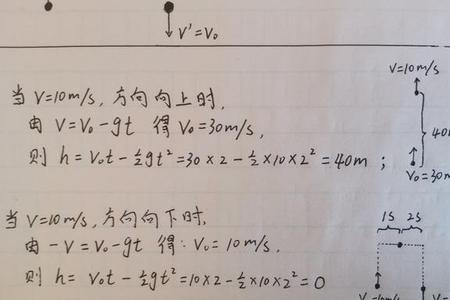 V'=V₀
当 V=10m/s, 方向向上时,
由 V=V₀-gt 得 V₀=30m/s,
则 h=V₀t-½gt²=30×2-½×10×2²=40m ;
V=10m/s
40m
V₀=30m
当 V=10m/s, 方向向下时,
由 -V=V₀-gt 得: V₀=10m/s.
则 h= V₀t-½gt²=10×2-½×10×2²=0
1S 2S